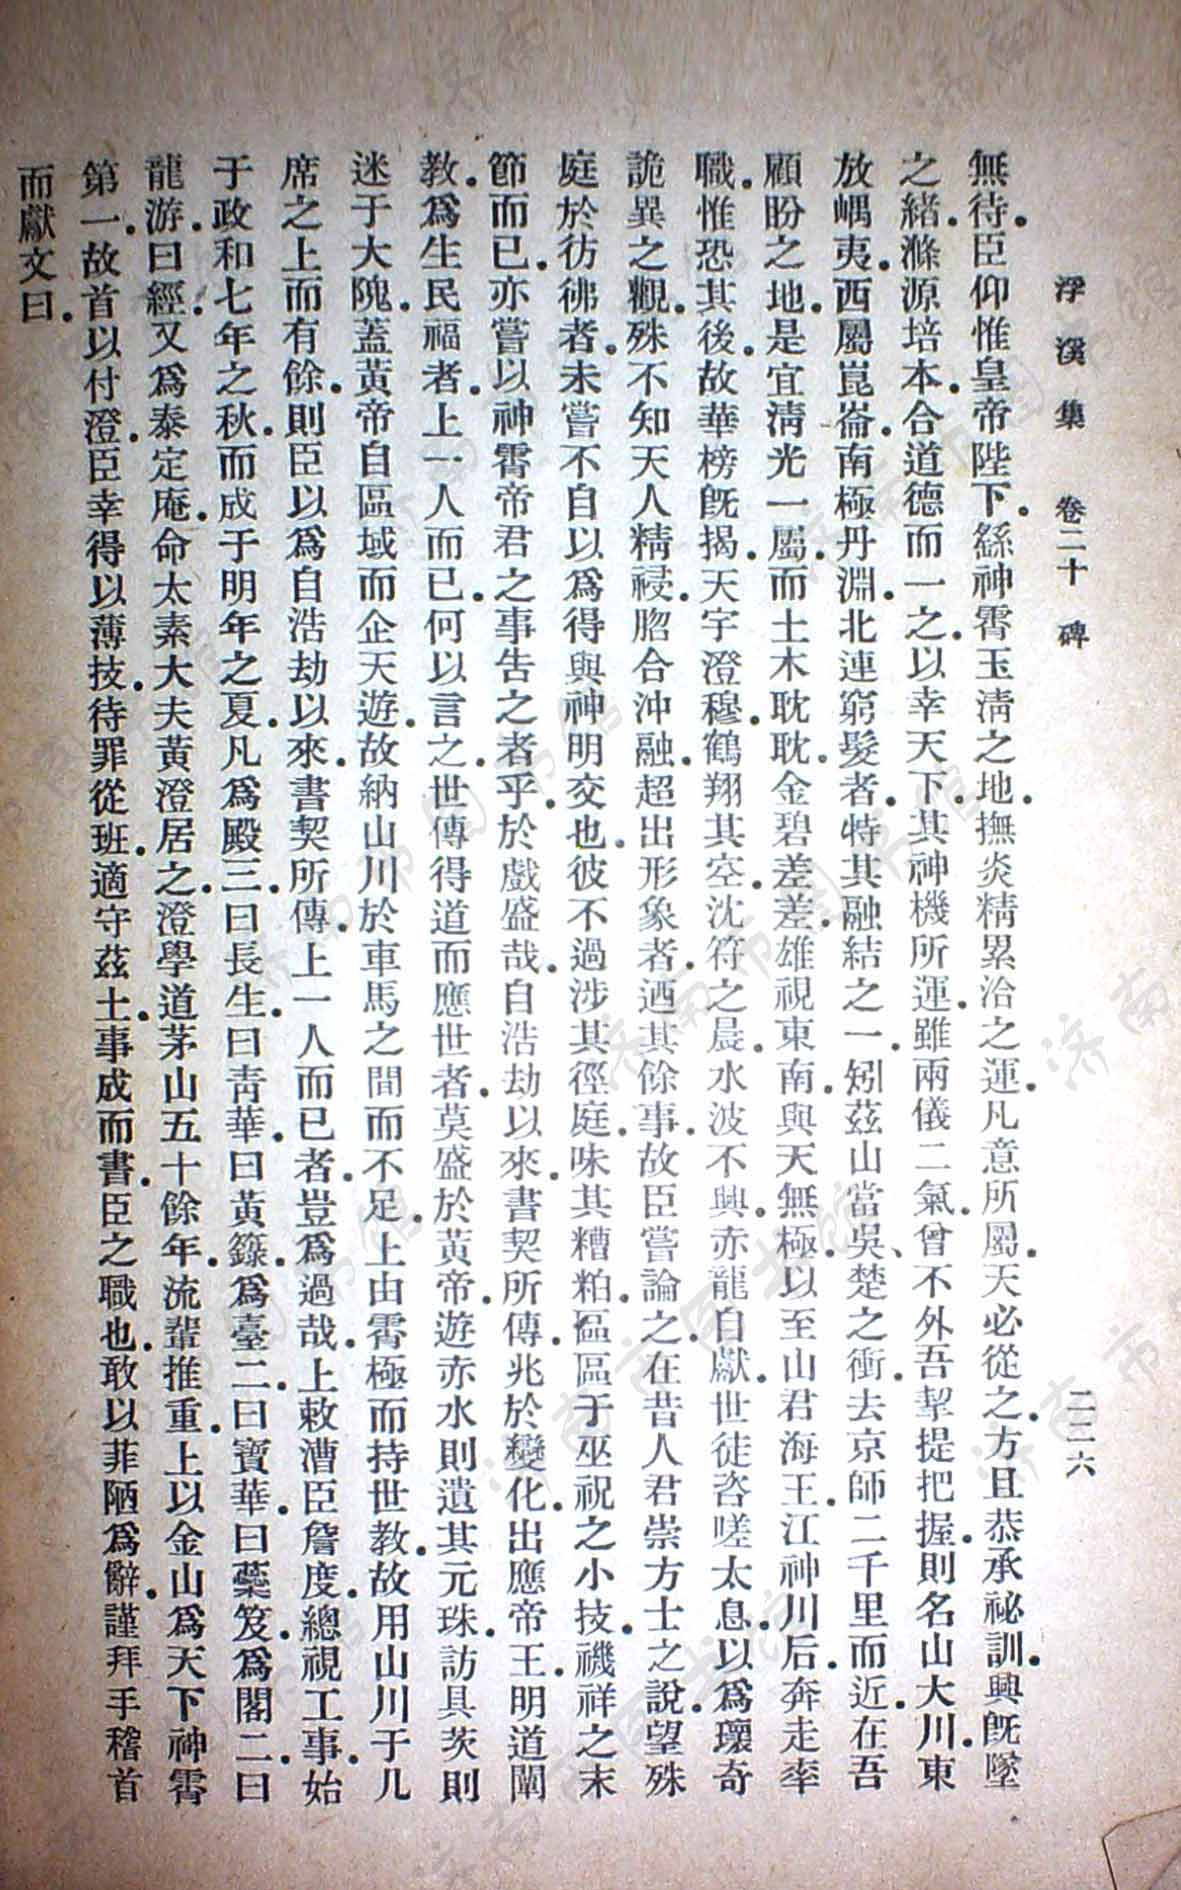 浮溪集 卷二十 碑 二二六
無待.臣仰惟皇帝陛下.繇神霄玉清之地.撫炎精累洽之運.凡意所屬.天必從之.方且恭承祕訓.興旣墜
之緒.滌源培本.合道德而一之.以幸天下.其神機所運.雖兩儀二氣.曾不外吾挈提把握.則名山大川.東
放嵎夷.西屬崑崙.南極丹淵.北連窮髮者.特其融結之一.矧茲山當吳、楚之衝.去京師二千里而近.在吾
顧盼之地.是宜淸光一屬.而土木耽耽.金碧差差.雄視東南.與天無極.以至山君海王.江神川后.奔走率
職.惟恐其後.故華榜旣揭.天宇澄穆.鶴翔其空.沈符之晨.水波不興.赤龍自獻.世徒咨嗟太息.以爲瓌奇
詭異之觀.殊不知天人精祲.脗合沖融.超出形象者.迺其餘事.故臣嘗論之.在昔人君崇方士之說.望殊
庭於彷彿者.未嘗不自以爲得與神明交也.彼不過涉其徑庭.味其糟粕.區區于巫祝之小技.禨祥之末
節而已.亦嘗以神霄帝君之事告之者乎.於戲盛哉.自浩劫以來.書契所傳.兆於變化.出應帝王.明道闡
教.爲生民福者.上一人而已.何以言之.世傳得道而應世者.莫盛於黃帝.遊赤水則遺其元珠.訪具茨則
迷于大隗.蓋黃帝自區域而企天遊.故納山川於車馬之間而不足.上由霄極而持世教.故用山川于几
席之上而有餘.則臣以爲自浩劫以來.書契所傳.上一人而已者.豈爲過哉.上敕漕臣詹度.總視工事.始
于政和七年之秋.而成于明年之夏.凡爲殿三.曰長生.曰靑華.曰黃籙.爲臺二.曰寶華.曰蘂笈.爲閣二.曰
龍游.曰經.又爲泰定庵.命太素大夫黃澄居之.澄學道茅山五十餘年.流輩推重.上以金山爲天下神霄
第一.故首以付澄.臣幸得以薄技.待罪從班.適守茲土.事成而書.臣之職也.敢以菲陋爲辭.謹拜手稽首
而獻文曰.